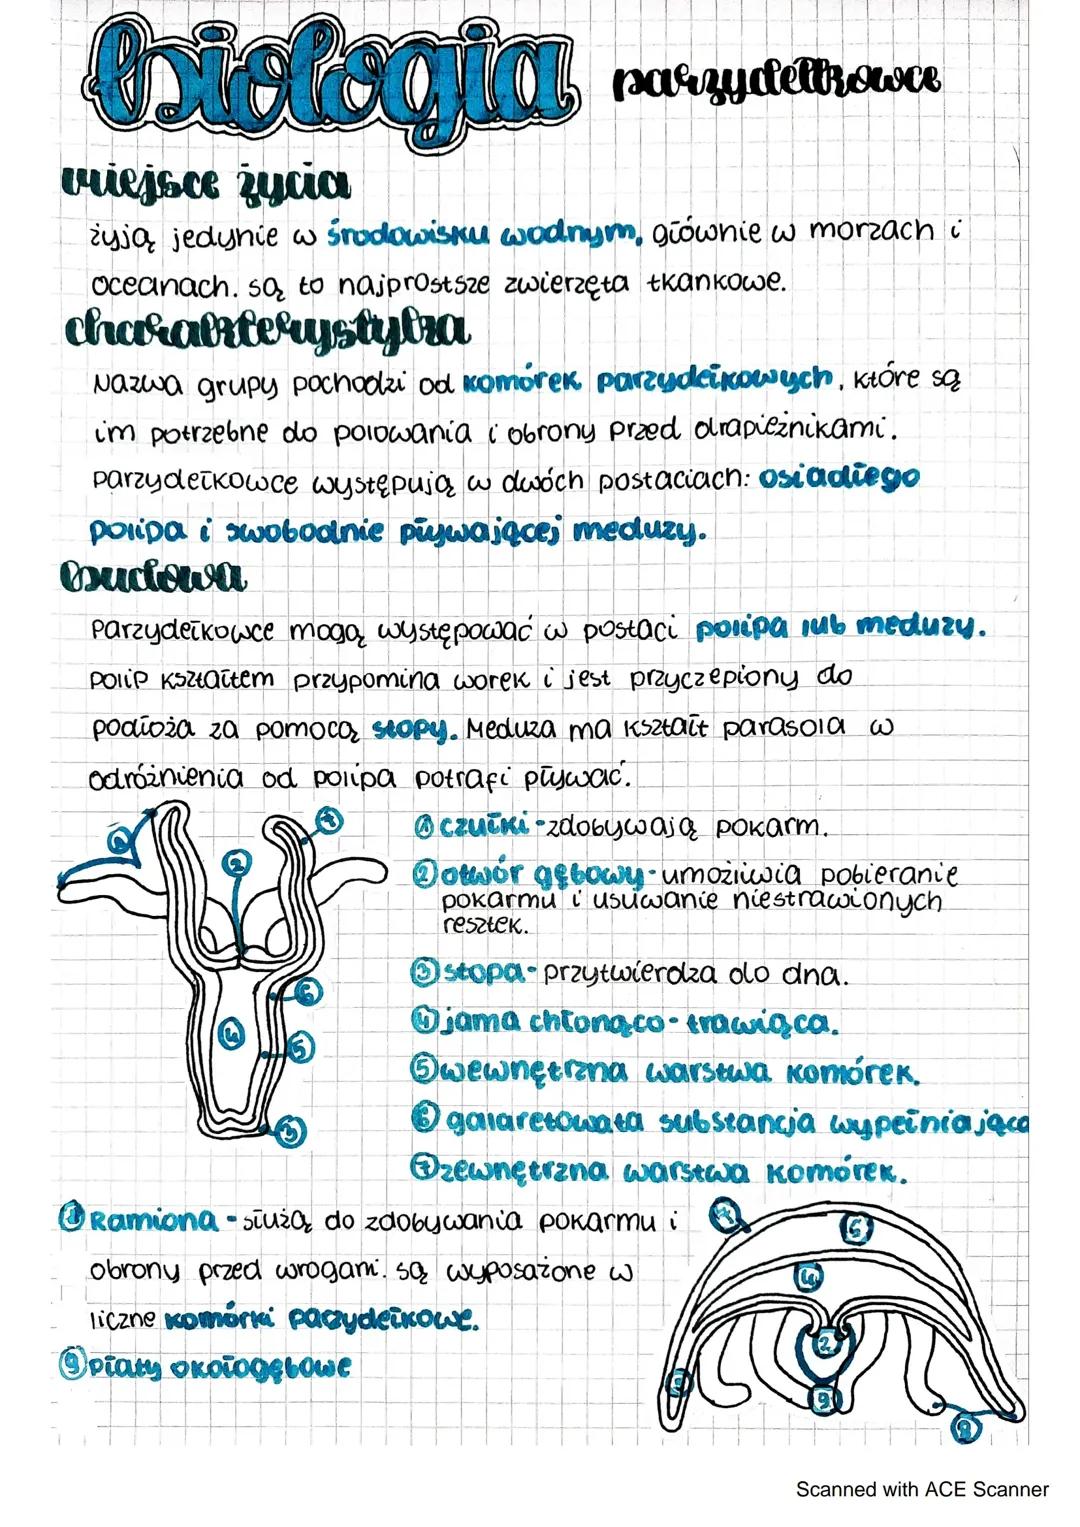 biologia parzydełkowce
miejsce życia
żyją jedynie w środowisku wodnym, głównie w morzach i
oceanach. są to najprostsze zwierzęta tkankowe.
charakterystyka
Nazwa grupy pochodzi od komórek parzydełkowych, które są
im potrzebne do polowania i obrony przed drapieżnikami.
parzydełkowce występują w dwóch postaciach: osiadłego
polipa i swobodnie pływającej meduzy.
budowa
parzydełkowce mogą występować w postaci polipa lub meduzy.
polip kształtem przypomina worek i jest przyczepiony do
podłoża za pomocą stopy. Meduza ma kształt parasola w
odróżnienia od polipa potrafi pływać.
① czułki - zdobywają pokarm.
② otwór gębowy - umożliwia pobieranie
pokarmu i usuwanie niestrawionych
resztek.
③ stopa - przytwierdza do dna.
④ jama chłonąco - trawiąca.
⑤ wewnętrzna warstwa komórek.
⑥ galaretowata substancja wypełniająca
⑦ zewnętrzna warstwa komórek.
Ramiona - służą do zdobywania pokarmu i
obrony przed wrogami. są wyposażone w
liczne komórki parzydełkowe.
⑨ płaty okołogębowe
Scanned with ACE Scanner